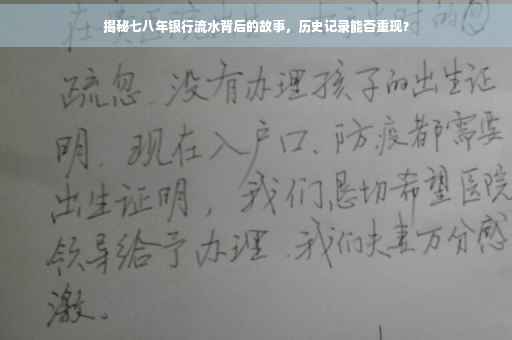 揭秘七八年银行流水背后的故事，历史记录能否重现？
疏忽、没有办理孩子的出生证
明、现在入户口、防疫都需要
出生证明，我们恳切希望医院
领导给予办理、我们夫妻万分感
激。